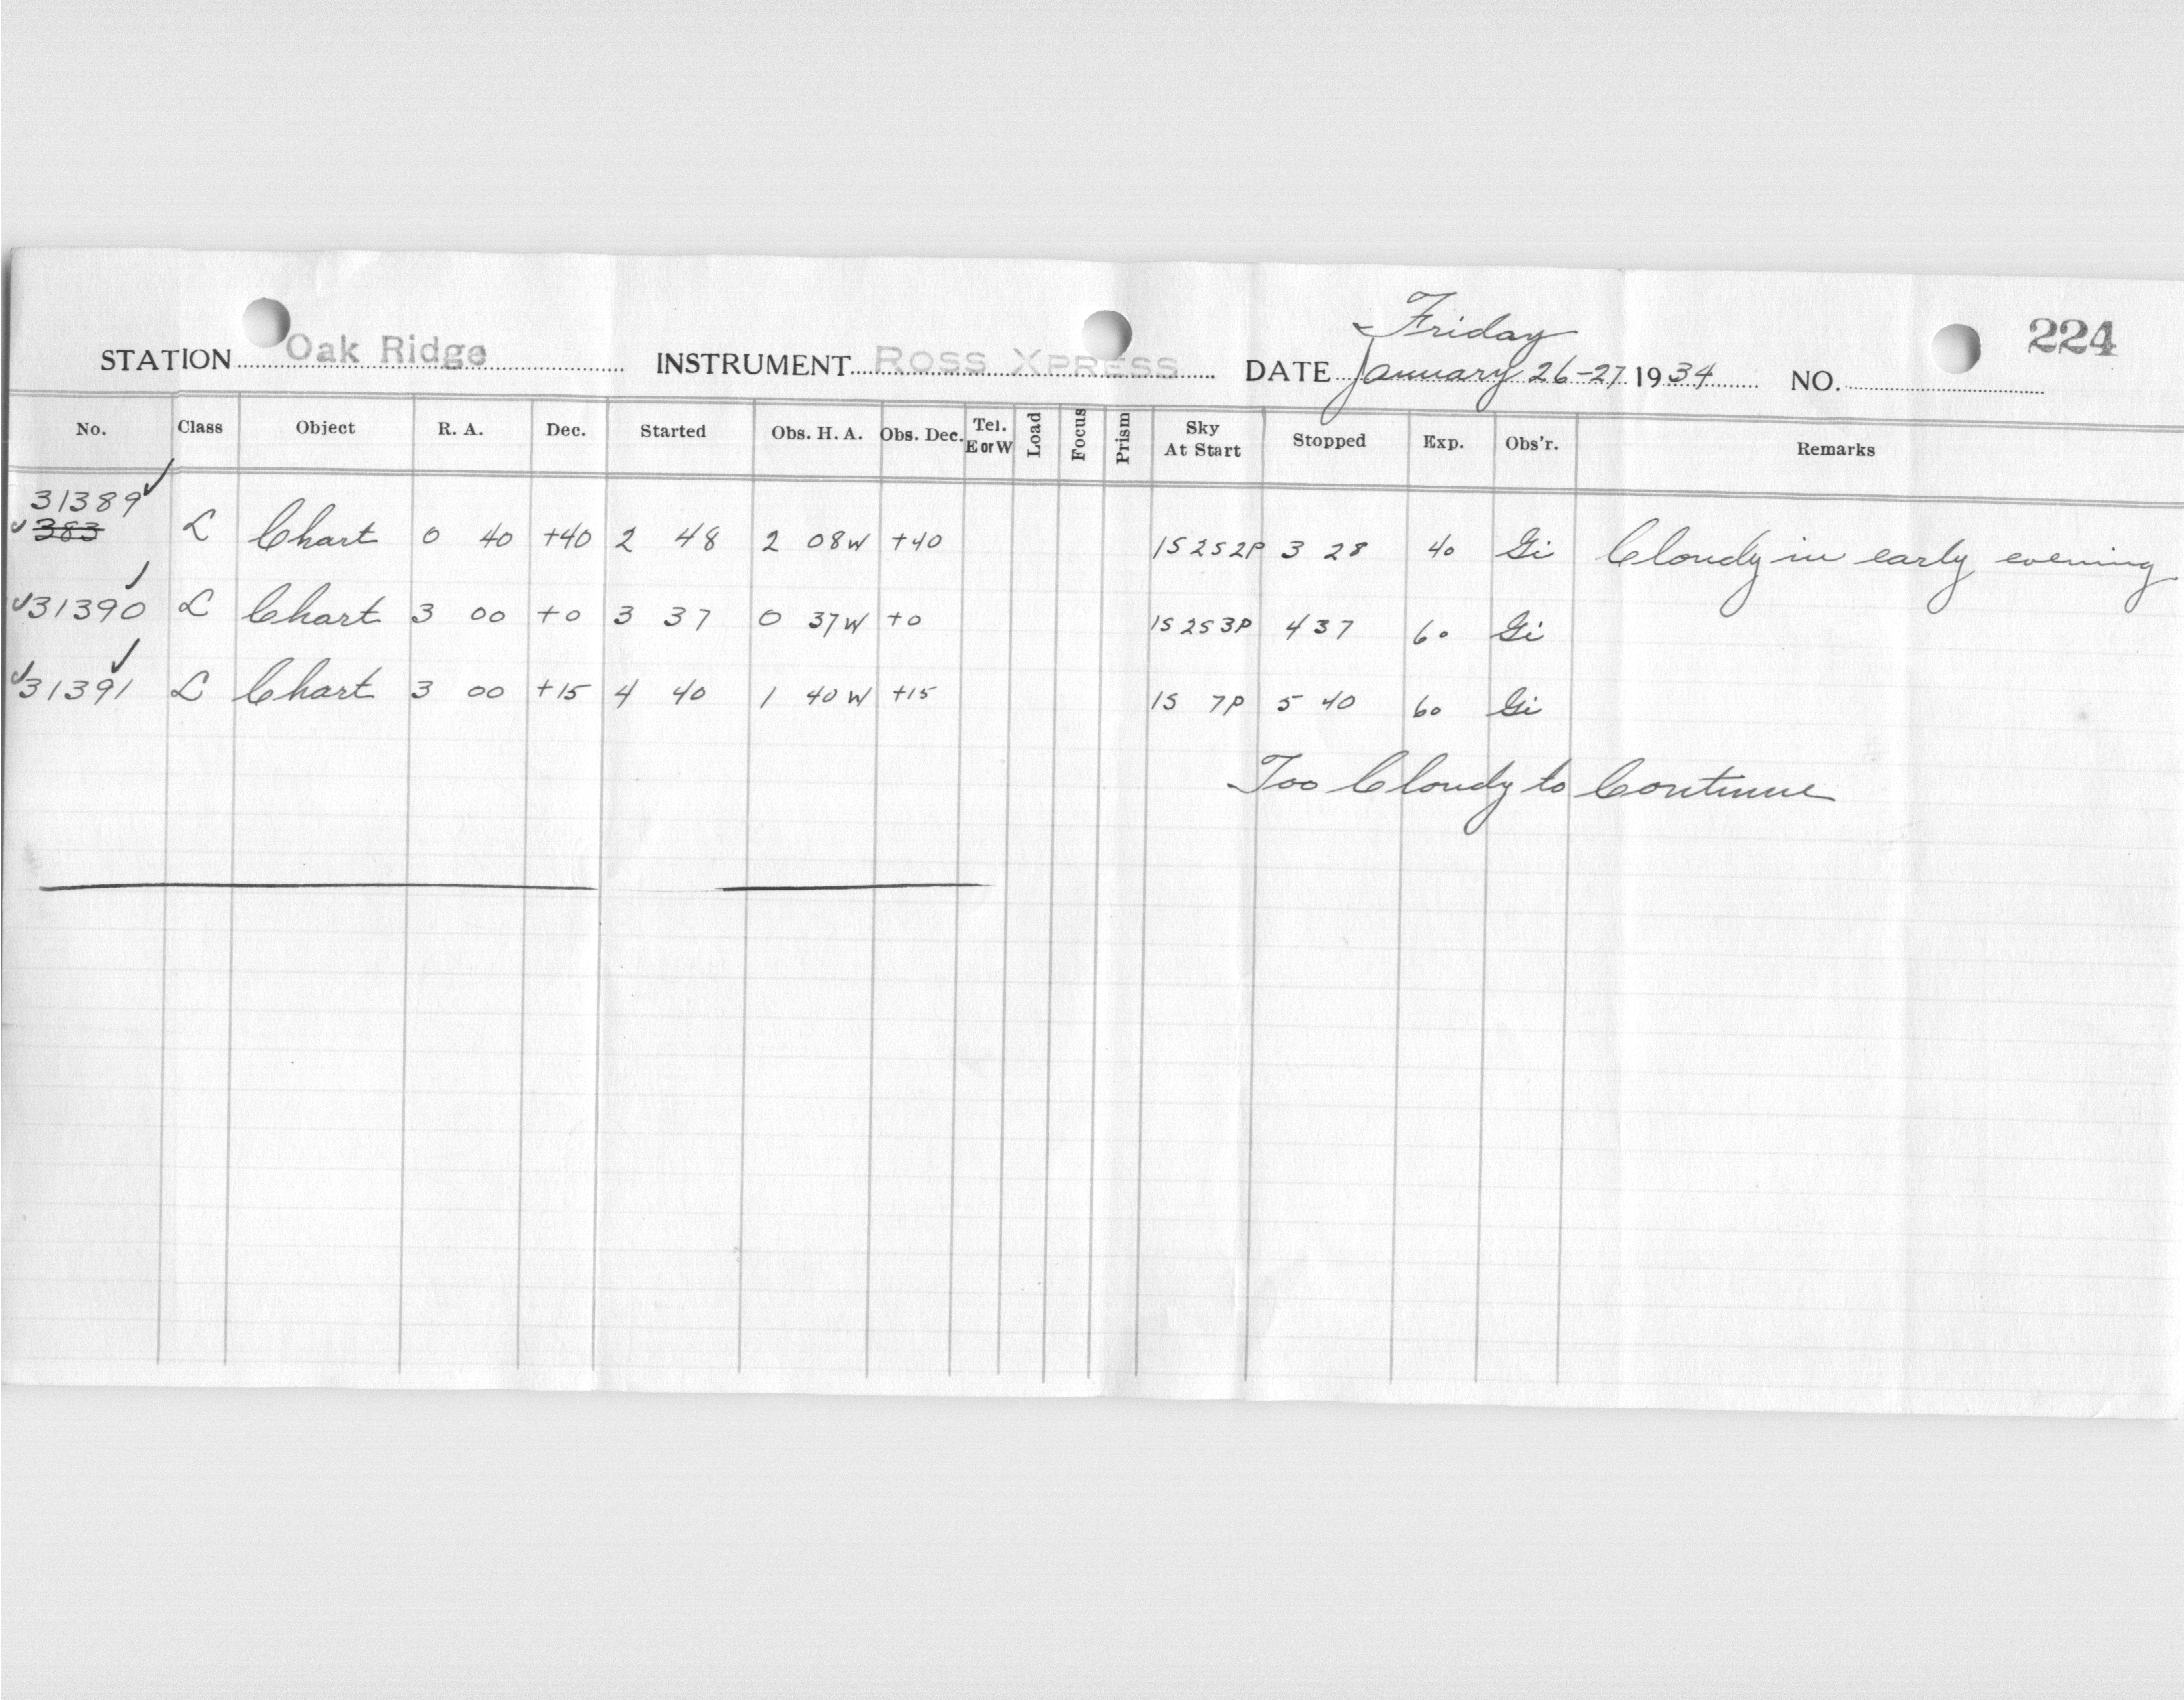 Friday
STATION Oak Ridge INSTRUMENT ROSS XPRESS DATE January 26-27 1934 NO. 224
No. Class Object R. A. Dec. Started Obs. H. A. Obs. Dec. Tel. E or W Load Focus Prism Sky At Start Stopped Exp. Obs'r. Remarks
31389
383 L Chart 0 40 +40 2 48 2 08W +40 1S 2S 2P 3 28 40 Gi Cloudy in early evening
31390 L Chart 3 00 +0 3 37 0 37W +0 1S 2S 3P 4 37 60 Gi
31391 L Chart 3 00 +15 4 40 1 40W +15 1S 7P 5 40 60 Gi
Too Cloudy to Continue